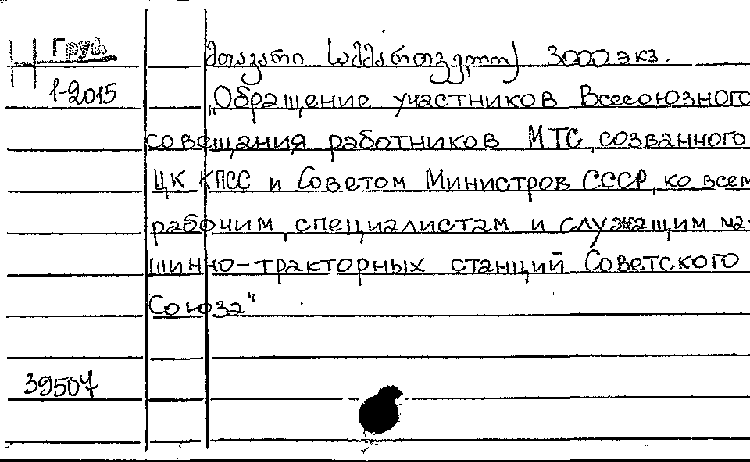 Груз
1-2015
მთავარი სამმართველო) 3000 экз.
„Обращение участников Всесоюзного
совещания работников МТС, созванного
ЦК КПСС и Советом Министров СССР, ко всем
рабочим, специалистам и служащим ма-
шинно-тракторных станций Советского
Союза"
39507